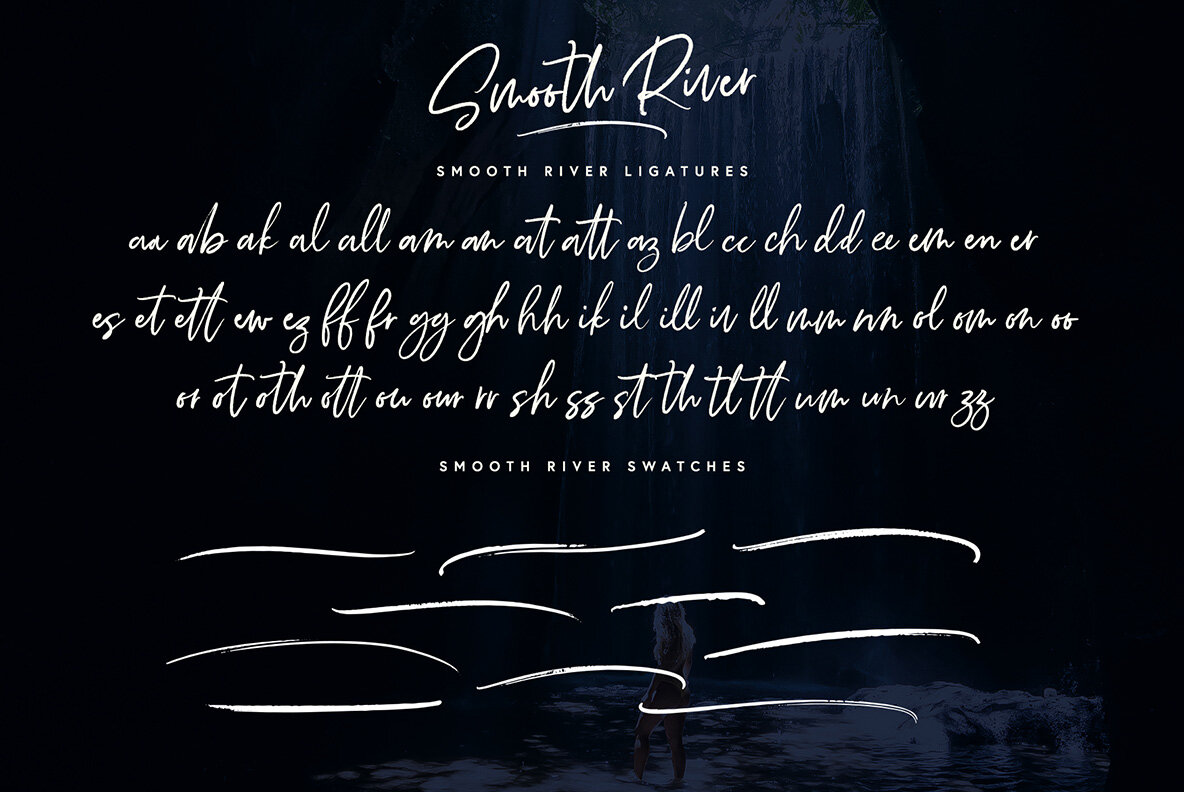 Smooth River
SMOOTH RIVER LIGATURES
aa ab ak al all am an at att az bl cc ch dd ee em en er
es et ett ew ez ff fr gy gh hh ik il ill in ll mm nn ol om on oo
or ot oth ott ou our rr sh ss st th tl tt um un ur zz
SMOOTH RIVER SWATCHES